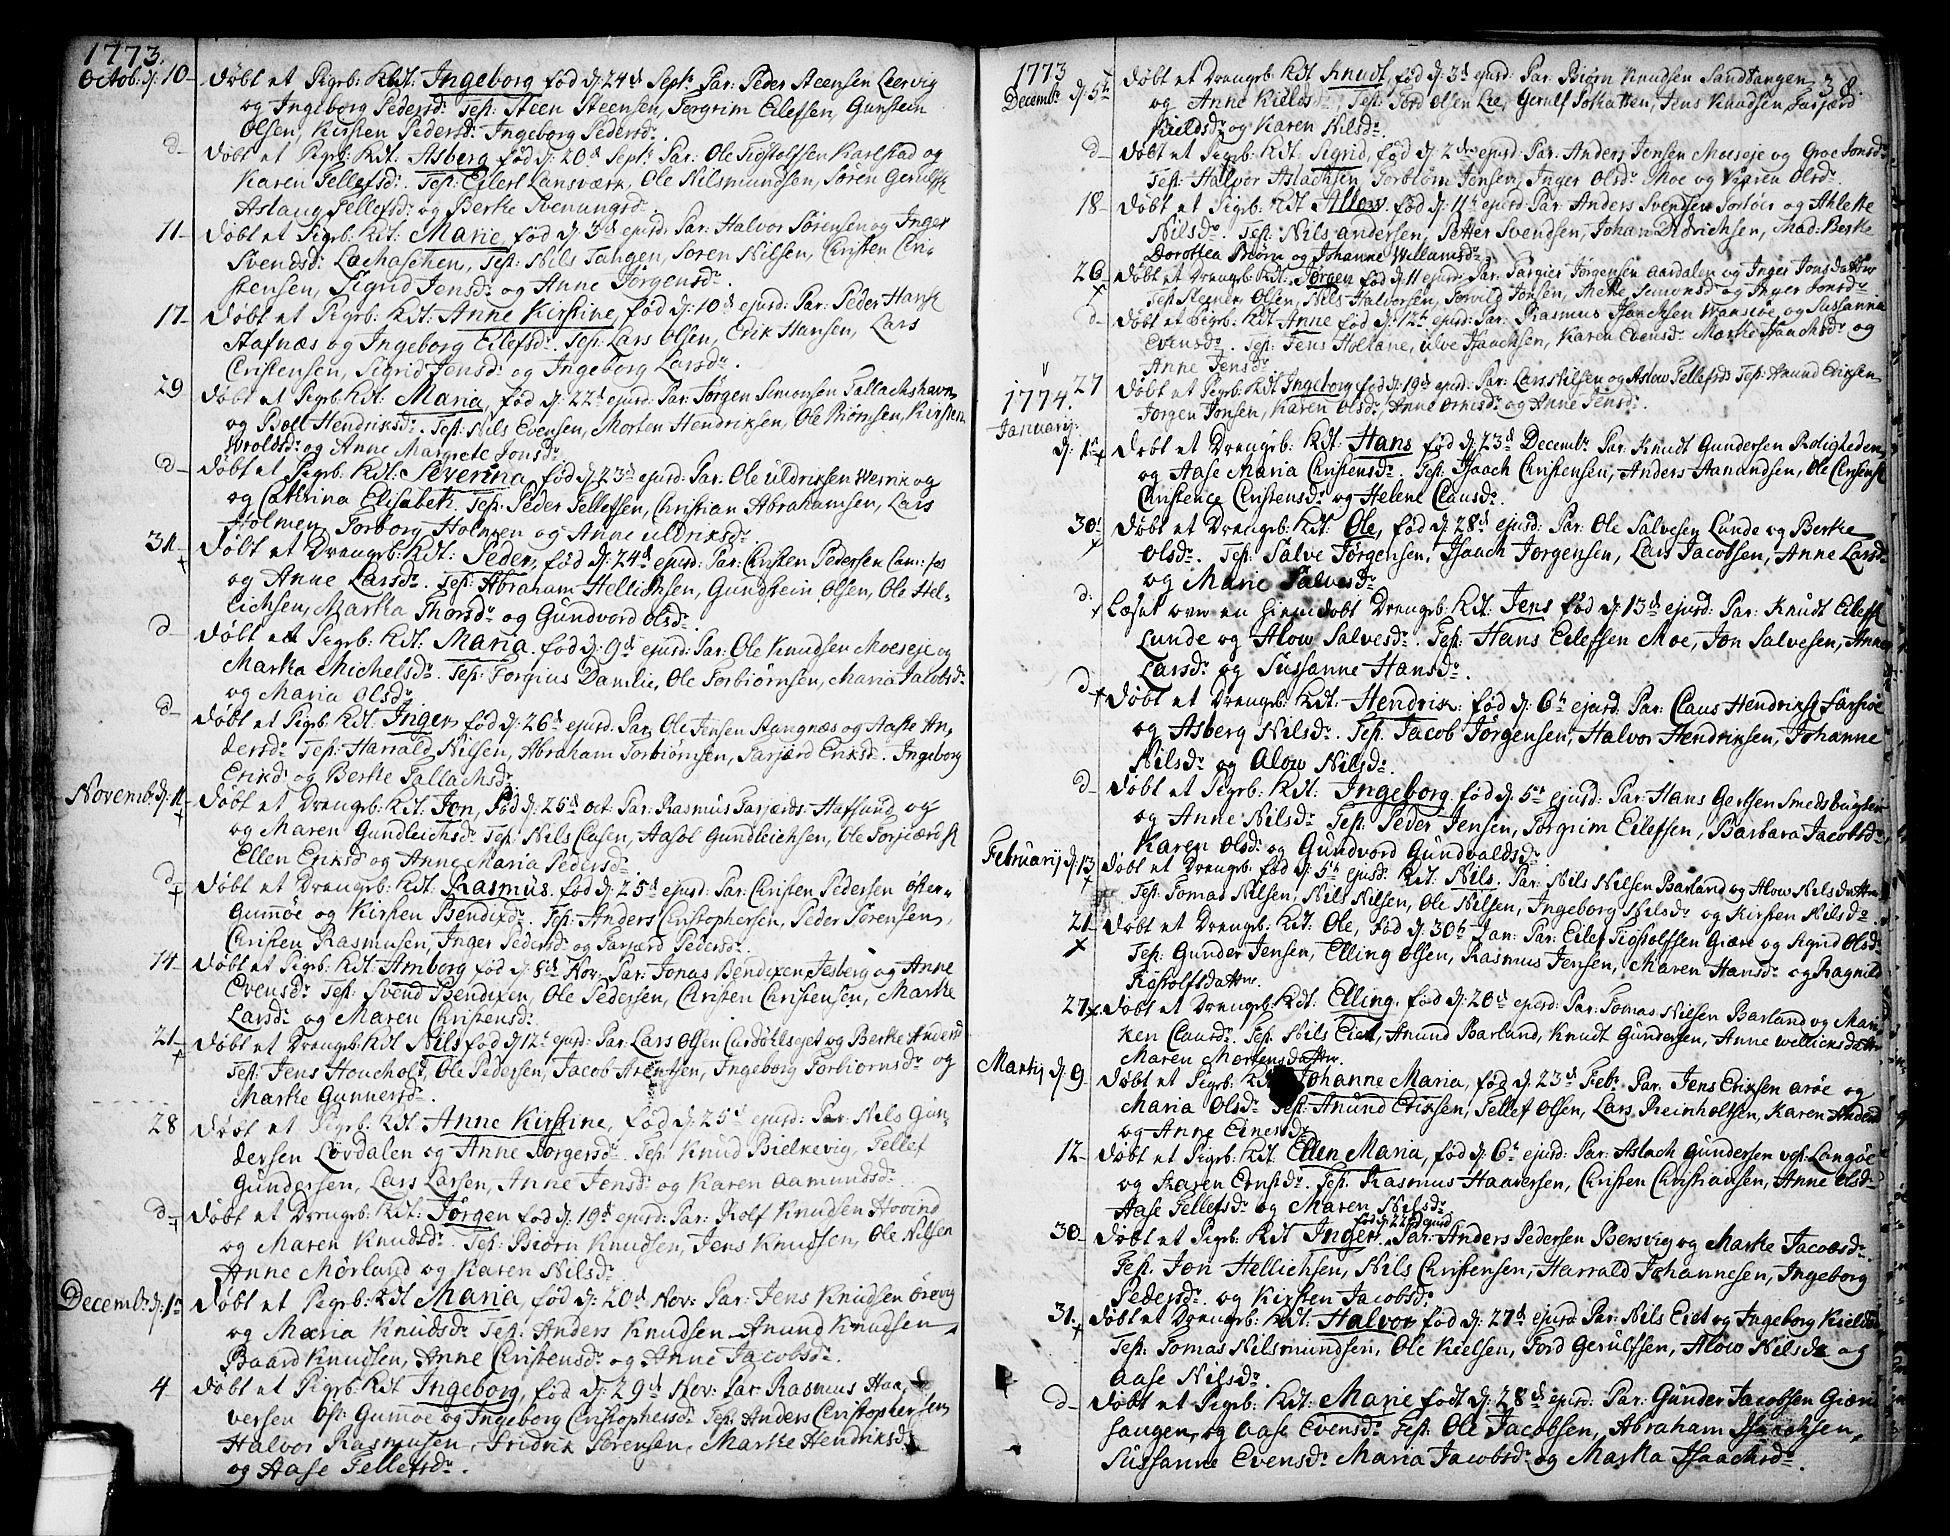 1773.
Octob: d: 10 Døbt et Pigeb: Kdt: Ingeborg fød d: 24d Sept: Par: Peder Steensen Leervig
og Ingeborg Pedersd: Test: Steen Steensen, Torgrim Eilefsen, Gunstein
Olsen, Kirsten Pedersd: Ingeborg Pedersd:
d– Døbt et Pigeb: Kdt: Asberg fød d: 20d Sept: Par: Ole Tiostolfsen Karlstad og
Karen Tellefsd: Test: Eilert Lansværk, Ole Nilsmundsen, Søren Gerulfs:
Aslaug Tellefsd: og Berthe Svenungsd:
11– Døbt et Pigeb: Kdt: Marie, fød d: 3d ejusd: Par: Halvor Sørensen og Inger
Svendsd: Test: Nils Tangen, Søren Nilsen, Christen Cri-
stensen, Sigrid Jensd: og Anne Jörgensd:
17– Døbt et Pigeb: Kdt: Anne Kirstine, fød d: 10d ejusd: Par: Peder Hans:
Stafnæs og Ingeborg Eilefsd: Test: Lars Olsen, Erik Hansen, Lars
Christensen, Sigrid Jensd: og Ingeborg Larsd:
29 Døbt et Pigeb: Kdt: Maria, fød d: 22d ejusd: Par: Jørgen Simonsen Tallachshavn
og Boel Hendriksd: Test: Nils Evensen, Morten Hendriksen, Ole Biörnsen, Kirsten
Wroldsd: og Anne Margrete Jonsd:
d– Døbt et Pigeb: Kdt: Severina, fød d: 23d ejusd: Par: Ole Uldriksen Wervik og
og Cathrina Elisabeth. Test: Peder Tellefsen, Christian Abrahamsen, Lars
Holmen, Torborg Holmen og Anne Uldriksd:
31– Døbt et Drengeb: Kdt: Peder, fød d: 24d ejusd: Par: Christen Pedersen
og Anne Larsd: Test: Abraham Hellichsen, Gundstein Olsen, Ole Hel-
lichsen, Martha Thorsd: og Gundvord Olsd:
d– Døbt et Pigeb: Kdt: Maria, fød d: 9d ejusd: Par: Ole Knudsen Moeseje og
Martha Michelsd: Test: Torgius Damlie, Ole Torbiörnsen, Maria Jacobsd:
og Maria Olsd:
d– Døbt et Pigeb: Kdt: Inger, fød d: 26d ejusd: Par: Ole Jensen Stangnæs og Aaste An-
dersd: Test: Harrald Nilsen, Abraham Torbiörnsen, Tarjærd Eriksd: Ingeborg
Eriksd: og Berthe Tallachsd:
Novemb: d: 1– Døbt et Drengeb: Kdt: Jon, fød d: 25d Oct: Par: Rasmus Tarjerds: Hafsund og
og Maren Gundleichsd: Test: Nils Clasen, Aasol Gundleichsen, Ole Torjærds:
Ellen Eriksd: og Anne Maria Pedersd:
d– Døbt et Drengeb: Kdt: Rasmus, fød d: 25d ejusd: Par: Christen Pedersen Öster-
Gumöe og Kirsten Bendixd: Test: Anders Cristophersen, Peder Sørensen,
Christen Rasmusen, Inger Pedersd: og Tarjærd Pedersd:
14– Døbt et Pigeb: Kdt: Amborg fød d: 8d Nov: Par: Jonas Bendixen Jesberg og Anne
Evensd: Test: Svend Bendixen, Ole Pedersen, Christen Christensen, Marthe
Larsd: og Maren Christensd:
21– Døbt et Drengeb: Kdt: Nils fød d: 12t ejusd: Par: Lars Olsen og Berthe Andersd:
Test: Jens Houcholt, Ole Pedersen, Jacob Arentsen, Ingeborg Torbiörnsd: og
Marthe Gunnersd:
28 Døbt et Pigeb: Kdt: Anne Kirstine, fød d: 25d ejusd: Par: Nils Gun-
dersen Lövdalen og Anne Jörgensd: Test: Knud Bielkevig, Tellef
Gundersen, Lars Larsen, Anne Jensd: og Karen Aamundsd:
d– Døbt et Drengeb: Kdt: Jörgen fød d: 19d ejusd: Par: Rolf Knudsen Hovind
og Maren Knudsd: Test: Biörn Knudsen, Jens Knudsen, Ole Nilsen
Anne Mörland og Karen Nilsd:
Decemb: d: 1– Døbt et Pigeb: Kdt: Maria, fød d: 20d Nov: Par: Jens Knudsen
og Maria Knudsd: Test: Anders Knudsen, Anund Knudsen,
Baard Knudsen, Anne Christensd: og Anne Jacobsd:
4 Døbt et Pigeb: Kdt: Ingeborg, fød d: 29d Nov: Par: Rasmus Haa-
versen Øst: Gumøe og Ingeborg Cristophersd: Test: Anders Christophersen,
Halvor Rasmusen, Fridrik Sørensen, Marthe Hendriksd:
og Aase Tellefsd:
1773 38.
Decemb: d 5 Døbt et Drengeb: Kdt: Knudt, fød d: 3d ejusd: Par: Biørn Knudsen Sandtangen
og Anne Kieldsd: Test: Tord Olsen Lie, Gerulf Schatten, Jens Knudsen, Tarjærd
Kieldsd: og Karen Nilsd:
d– Døbt et Pigeb: Kdt: Sigrid, fød d: 2d ejusd: Par: Anders Jensen Moeseje og Groe Jonsd:
Test: Halvor Aslachsen, Torbiørn Jensen, Inger Olsd: Moe og Maria Olsd:
18– Døbt et Pigeb: Kdt Allow, fød d: 11t ejusd: Par: Anders Svendsen og Athlethe
Nilsd: Test: Nils Andersen, Petter Svendsen, Johan Didrichsen, Mad: Berthe
Dorothea Biørn og Johanne Wellumsd:
26 Døbt et Drengeb: Kdt: Jørgen fød d: 11 ejusd: Par: Targier Jørgensen Aardalen og Inger Jonsdatter
Test: Steener Olsen, Nils Halvorsen, Torvild Jonsen, Methe Simonsd: og Inger Jonsd:
d– Døbt et Pigeb: Kdt: Anne fød d: 12t ejusd: Par: Rasmus Isaachsen Wransøe og Susanna
Evensd: Test: Jens Holtane, Ulve Isaachsen, Karen Evensd: Marthe Isaachsd: og
Anne Jensd:
27 Døbt et Pigeb: Kdt: Ingeborg fød d: 19d ejusd: Par: Lars Nilsen og Aslow Tellefsd: Test: Anund Eriksen
Jørgen Jonsen, Karen Olsd: Anne Ornisd: og Anne Jensd:
1774.
Januarij.
d: 1– Døbt et Drengeb: Kdt: Hans fød d: 23d Decembr: Par: Knudt Gundersen Roligheden
og Aase Maria Christensd: Test: Isaach Christensen, Anders Aanundsen, Ole Christens:
Christence Christensd: og Helene Clausd:
30 Døbt et Drengeb: Kdt: Ole, fød d: 28d ejusd: Par: Ole Salvesen Lunde og Berthe
Olsd: Test: Salve Jørgensen, Isaach Jørgensen, Lars Jacobsen, Anne Larsd:
og Marie Salvesd:
d. Læset over en hiemdøbt Drengeb: Kdt: Jens fød d: 13d ejusd: Par: Knudt Eilefs:
Lunde og Alow Salvesd: Test: Hans Eilefsen Moe, Jon Salvesen, Anne
Larsd: og Sussanne Hansd:
d Døbt et Drengeb: Kdt: Hendrik: fød d: 6t ejusd: Par: Claus Hendriks: Sarsøe
og Asberg Nilsd: Test: Jacob Jørgensen, Halvor Hendriksen, Johanne
Nilsd: og Alow Nilsd:
d– Døbt et Pigeb: Kdt: Ingeborg. fød d: 5t ejusd: Par: Hans Gertsen Smedsbugten
og Anne Nilsd: Test: Peder Jensen, Torgrim Eilefsen, Barbara Jacobsd:
Karen Olsd: og Gundvord Gundvaldsd:
Februarij d: 13 Døbt et Drengeb: fød d: 5t ejusd: Kdt: Nils. Par: Nils Nilsen Barland og Alow Nilsdatter
Test: Tomas Nilsen, Nils Nilsen, Ole Nilsen, Ingeborg Nilsd: og Kirsten Nilsd:
21– Døbt et Drengeb: Kdt: Ole, fød d: 30t Jan: Par: Eilef Tiostolfsen Giære og Sigrid Olsd:
Test: Gunder Jensen, Elling Olsen, Rasmus Jensen, Maren Hansd: og Ragnild
Tiostolfsdatter
27 Døbt et Drengeb: Kdt: Elling, fød d: 20d ejusd: Par: Tomas Nilsen Barland og Mari-
ken Clausd: Test: Nils Eiet, Anund Barland, Knudt Gundersen, Anne Wellicksdatter
Maren Mortensdatter.
Martij d: 9 Døbt et Pigeb: Kdt: Johanne Maria, fød d: 23d Feb: Par: Jens Eriksen Arøe og
Maria Olsd: Test: Anund Eriksen, Tellef Olsen, Lars Reinholtsen, Karen Andersd:
og Anne Einersd:
12– Døbt et Pigeb: Kdt: Ellen Maria, fød d: 6t ejusd: Par: Aslach Gundersen vest: Langøe
og Karen Ernstd: Test: Rasmus Haaversen, Christen Christiansen, Anne Olsd:
Aase Tellefsd: og Maren Nilsd:
fød d: 22d ejusd
30– Døbt et Pigeb: Kdt Inger. Par: Anders Pedersen Bersvig og Marthe Jacobsd:
Test: Jon Hellichsen, Nils Christensen, Harrald Johannesen, Ingeborg
Pedersd: og Kirsten Jacobsd:
31. Døbt et Drengeb: Kdt: Halvor fød d: 27d ejusd: Par: Nils Eiet og Ingeborg Kieldsd:
Test: Tomas Nilsmundsen, Ole Kielsen, Tord Gerulfsen, Alow Nilsd: og
Aase Nilsd:
d– Døbt et Pigeb: Kdt: Marie født d: 28d ejusd: Par: Gunder Jacobsen
og Aase Evensd: Test: Ole Jacobsen, Abraham Isaachsen,
Sussanne Evensd: Maria Jacobsd: og Martha Isaachsd: